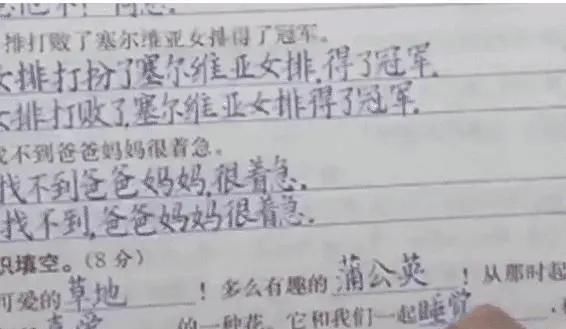 排打败了塞尔维亚女排得了冠军。
女排打扮了塞尔维亚女排,得了冠军.
女排打败了,塞尔维亚女排得了冠军.
找不到爸爸妈妈很着急。
找不到爸爸妈妈,很着急.
找不到,爸爸妈妈很着急.
识填空。(8分)
可爱的草地!多么有趣的蒲公英!从那时起
喜爱的一种花。它和我们一起睡觉,